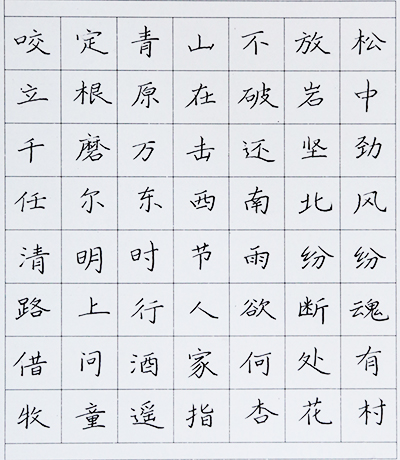 咬定青山不放松
立根原在破岩中
千磨万击还坚劲
任尔东西南北风
清明时节雨纷纷
路上行人欲断魂
借问酒家何处有
牧童遥指杏花村